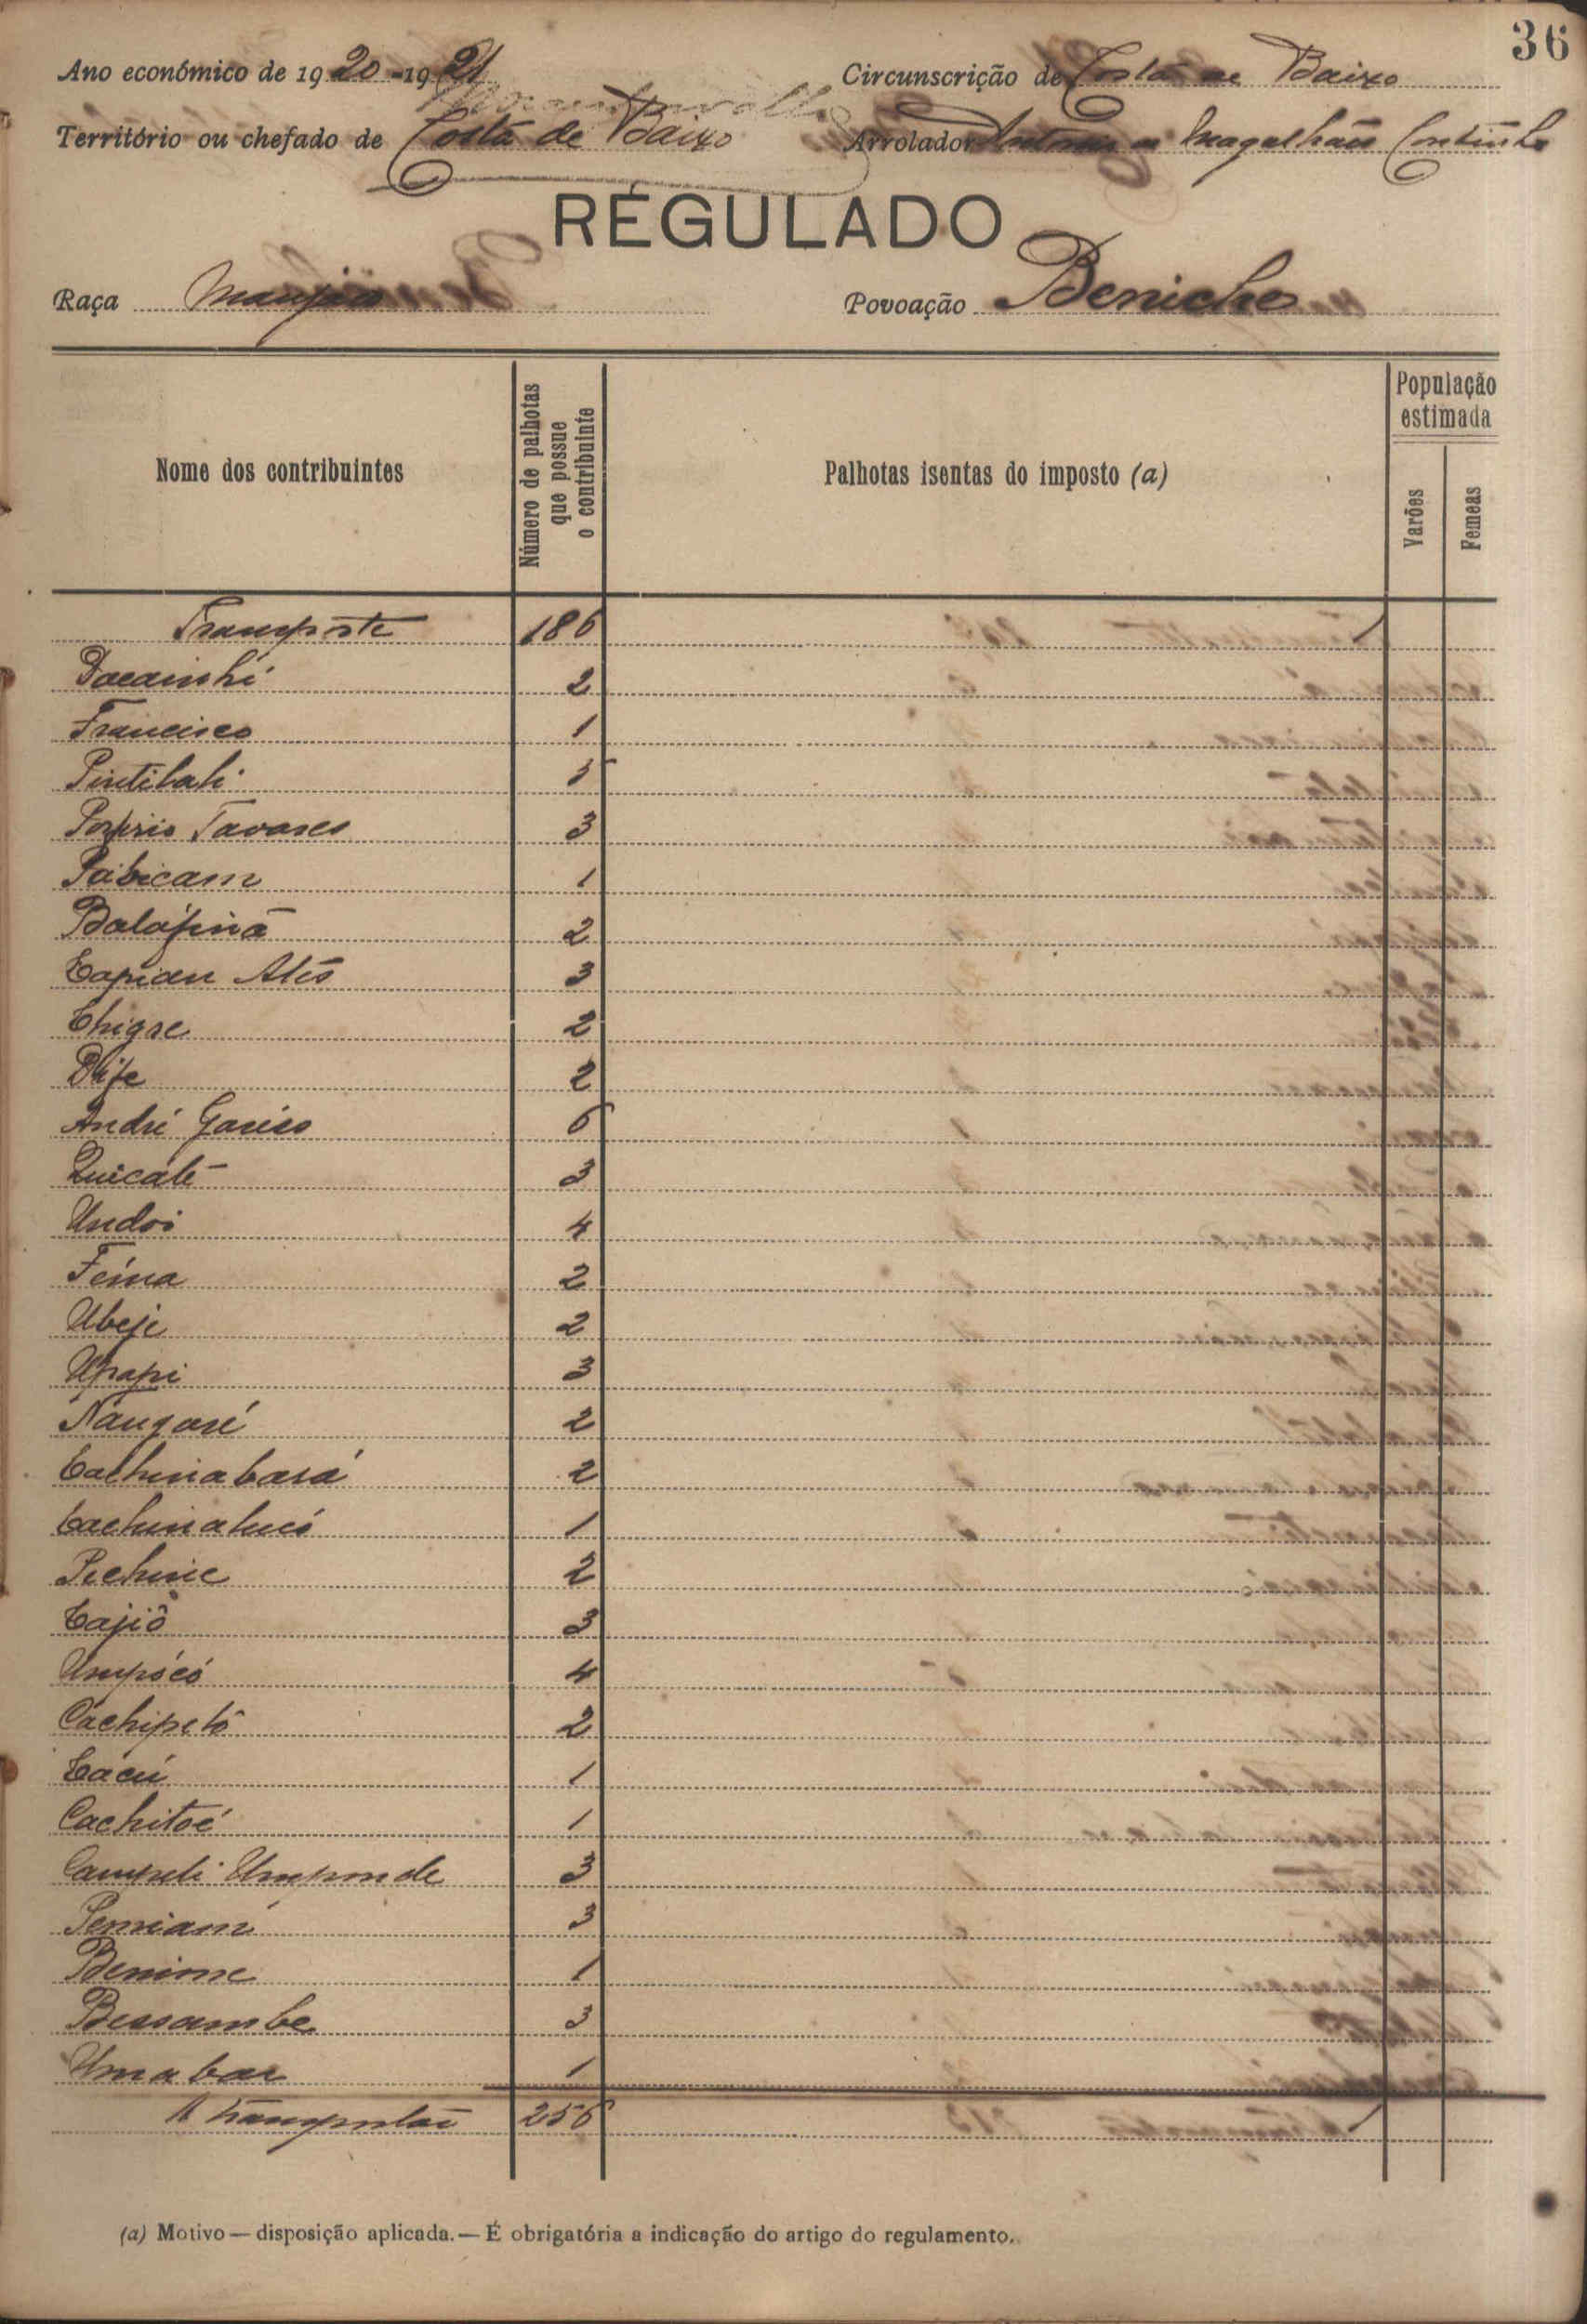 36
Ano económico de 1920-1921 Circunscrição de Costa de Baixo
Território ou chefado de Costa de Baixo Arrolador Antonio de Magalhães Coutinho
RÉGULADO
Raça Manjaco Povoação Beniche
Nome dos contribuintes
Número de palhotas que possue o contribuinte
Palhotas isentas do imposto (a)
População estimada
Varões
Femeas
Transporte 186 1
Dacainhi 2
Francisco 1
Pintibali 5
Porfirio Tavares 3
Pabicam 1
Balafinã 2
Capian Atés 3
Chigre 2
Blife 2
André Gomes 6
Quicalé 3
Undoi 4
Feina 2
Ubeje 2
Upapi 3
Nangaré 2
Cachinabará 2
Cachinalucó 1
Pechinic 2
Cajiô 3
Umpócó 4
Cachipetô 2
Cacú 1
Cachitoé 1
Campeli Umponde 3
Pemiami 3
Benime 1
Bessambe 3
Umabar 1
A transportar 256 1
(a) Motivo — disposição aplicada. — É obrigatória a indicação do artigo do regulamento.